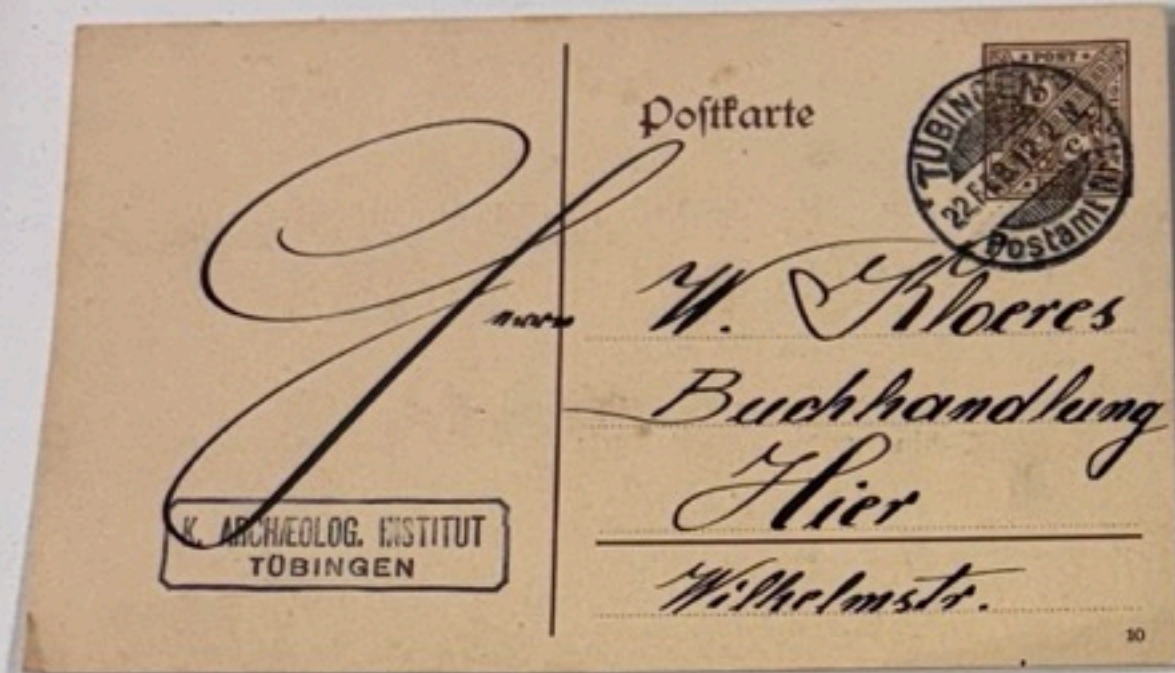 Postkarte
POST
TÜBINGEN
22.FEB.12.2-N.
c
Postamt Nr.
Herrn W. Kloeres
Buchhandlung
Hier
Wilhelmstr.
K. ARCHÆOLOG. INSTITUT
TÜBINGEN
10